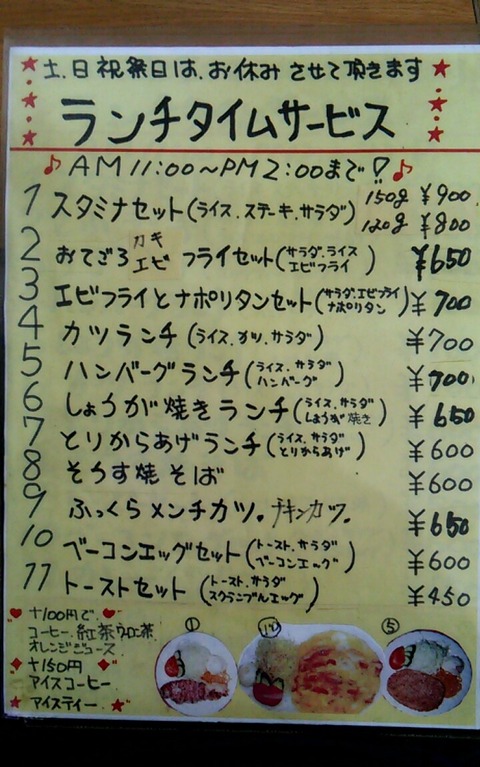 土、日祝祭日は、お休みさせて頂きます
ランチタイムサービス
AM11:00~PM2:00まで!!
1 スタミナセット(ライス.ステーキ.サラダ) 150g ¥900
120g ¥800
2 おてごろ カキ エビ フライセット(サラダ.ライス エビフライ) ¥650
3 エビフライとナポリタンセット(サラダ.エビフライ ナポリタン) ¥700
4 カツランチ (ライス.カツ.サラダ) ¥700
5 ハンバーグランチ(ライス.サラダ ハンバーグ) ¥700
6 しょうが焼きランチ(ライス.サラダ しょうが焼き) ¥650
7 とりからあげランチ(ライス.サラダ とりからあげ) ¥600
8 そうす焼そば ¥600
9 ふっくらメンチカツ。チキンカツ。 ¥650
10 ベーコンエッグセット(トースト.サラダ ベーコンエッグ) ¥600
11 トーストセット (トースト.サラダ スクランブルエッグ) ¥450
+100円で
コーヒー.紅茶
オレンジジュース
+150円
アイスコーヒー
アイスティー
① ⑤